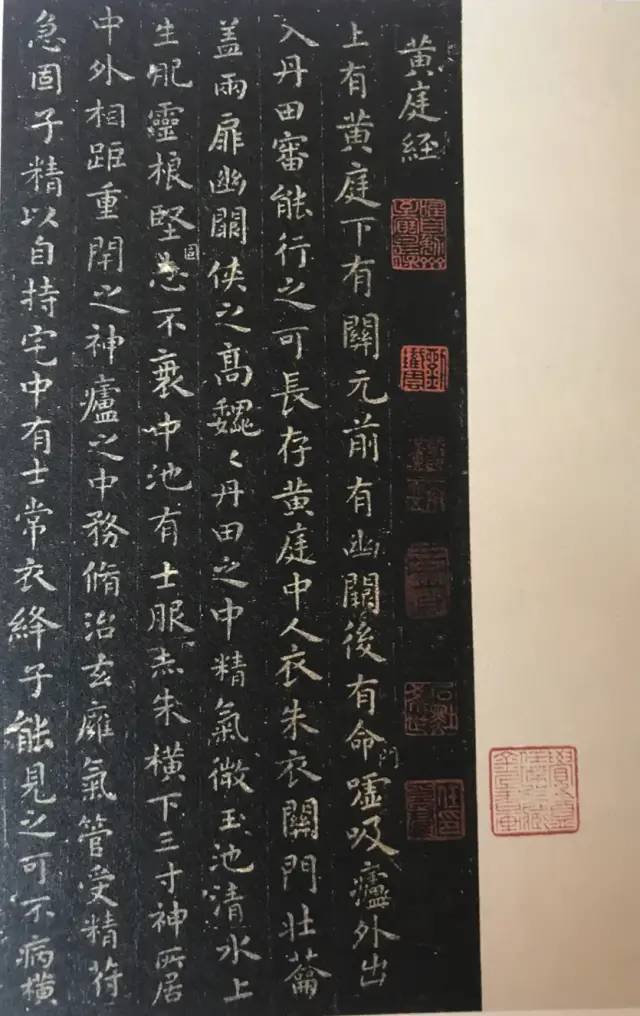 黄庭経
上有黄庭下有關元前有幽闕後有命門嘘吸廬外出
入丹田審能行之可長存黄庭中人衣朱衣關門壮蘥
盖兩扉幽闕侠之高魏々丹田之中精氣微玉池清水上
生肥靈根堅固志不衰中池有士服赤朱横下三寸神所居
中外相距重閇之神廬之中務脩治玄癰氣管受精符
急固子精以自持宅中有士常衣絳子能見之可不病横